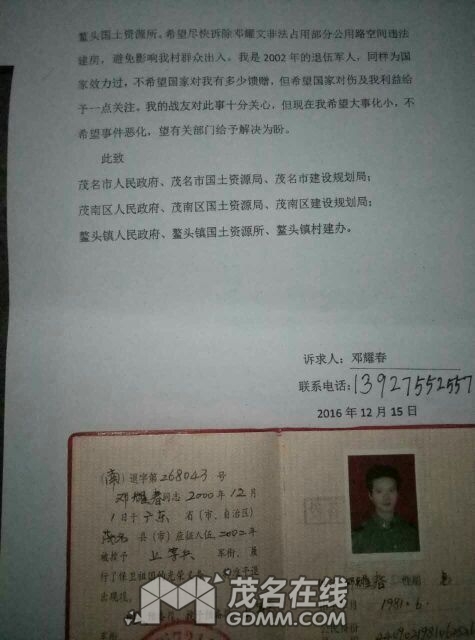 鳌头国土资源所。希望尽快拆除邓耀文非法占用部分公用路空间违法
建房，避免影响我村群众出入。我是 2002 年的退伍军人，同样为国
家效力过，不希望国家对我有多少馈赠，但希望国家对伤及我利益给
予一点关注。我的战友对此事十分关心，但现在我希望大事化小，不
希望事件恶化，望有关部门给予解决为盼。
此致
茂名市人民政府、茂名市国土资源局、茂名市建设规划局；
茂南区人民政府、茂南区国土资源局、茂南区建设规划局；
鳌头镇人民政府、鳌头镇国土资源所、鳌头镇村建办。
诉求人：邓耀春
联系电话：13927552557
2016 年 12 月 15 日
(南) 退字第 268043 号
邓耀春 同志 2000 年 12 月
1 日于 广东 省(市、自治区)
茂名 县(市)应征入伍，2002 年
被授予 上等兵 军衔，履
行了保卫祖国的光荣义务，
出现役。
耀春 性别
1981.6.
茂名在线
GDMM.COM